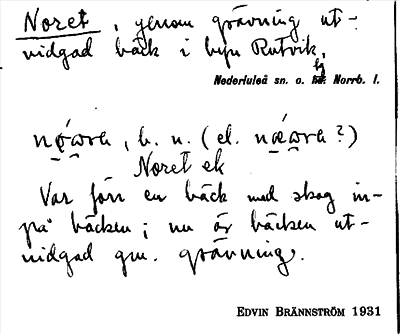 Noret, genom grävning ut-
vidgad bäck i byn Rutvik,
Nederluleå sn. o. hd. Norrb. l.
tg
b. n. (el.
Noret ek
Var förr en bäck med skog in-
på bäcken; nu är bäcken ut-
vidgad gm. grävning.
EDVIN BRÄNNSTRÖM 1931